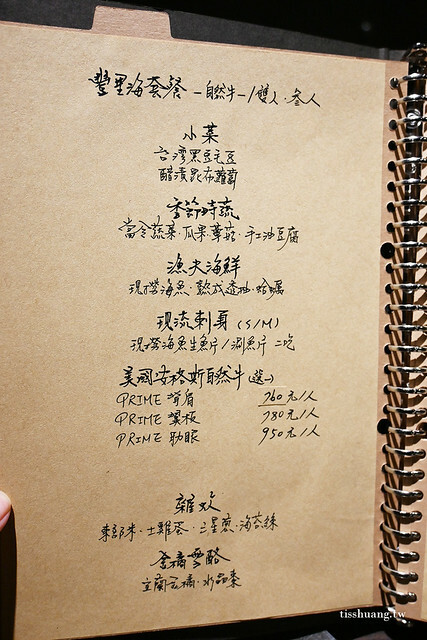 豐里海套餐 - 自然牛 - / 雙人·叁人
小菜
台灣黑豆毛豆
醋漬昆布蘿蔔
季節時蔬
當令蔬菜·瓜果蕈菇·手工油豆腐
漁夫海鮮
現撈海魚·熟式透抽·蛤蠣
現流刺身 (S/M)
現撈海魚生魚片 / 涮魚片 二吃
美國安格斯自然牛 (選一)
PRIME 背眉 760元/人
PRIME 翼板 780元/人
PRIME 肋眼 950元/人
雜炊
東部米·土雞蛋·三星蔥·海苔絲
金橘雪酪
宜蘭金橘·水晶棗
tisshuang.tw